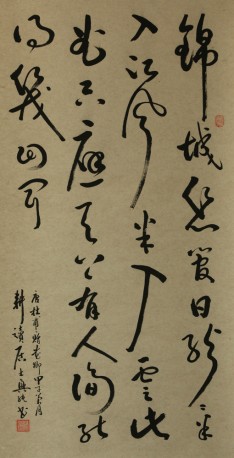 錦城絲管日紛〻半
入江風半入雲此
曲只應天上有人間能
得幾回聞
唐杜甫詩 甲子 月
耕讀居士 書